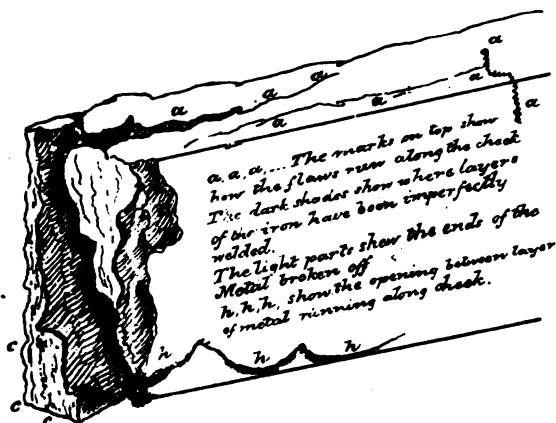 a
a
a
a
a
a
a
a
a, a, a, ... The marks on top show
how the flaws run along the cheek
The dark shades show where layers
of the iron have been imperfectly
welded.
The light parts show the ends of the
Metal broken off
h, h, h, show the opening between layer
of metal running along cheek.
h
h
h
c
c
c